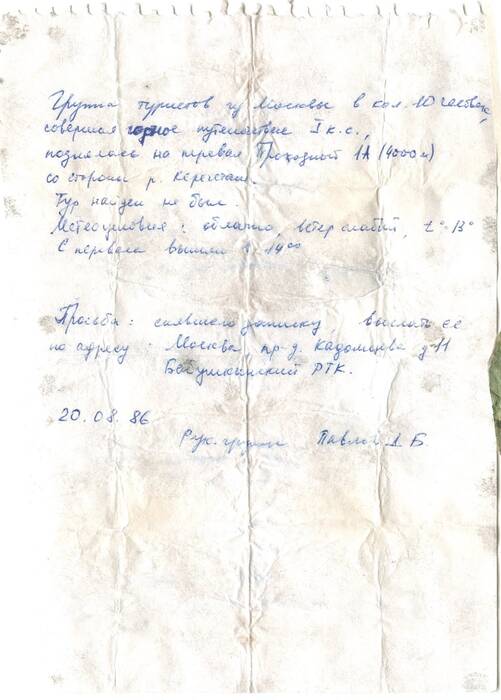 Группа туристов гу Москвы в кол. 10 человек,
совершая горное путешествие I к.с.,
поднялась на перевал Проходный 1А (4000 м)
со стороны р. Кереген.
Тур найден не был.
Метеоусловия: облачно, ветер слабый, t°-13°
С перевала вышли в 14⁰⁰
Просьба: снявшего записку выслать её
по адресу: Москва пр-д. Кадомцева д-11
Бабушкинский РТК.
20.08.86
Рук. группы Павлов Б.